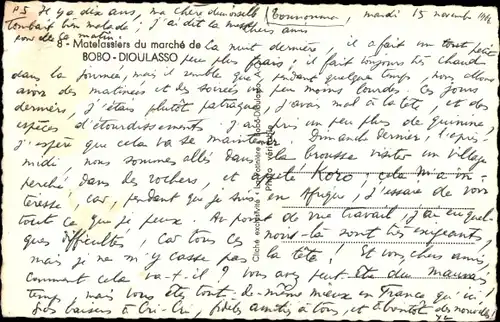 P.S. Il y a dix ans, ma chère demoiselle
tombait bien malade ; j'ai dit la messe
pour elle ce matin.
mardi 15 novembre
chers amis
8 - Matelassiers du marché de
BOBO - DIOULASSO
la nuit dernière, il a fait un tout petit
peu plus frais ; il fait toujours très chaud
dans la journée, mais il semble que pendant quelque temps, nous allons
avoir des matinées et des soirées un peu moins lourdes. Ces jours
derniers, j'étais plutôt patraque, j'avais mal à la tête, et des
espèces d'étourdissements. J'ai pris un peu plus de quinine,
j'espère que cela va se maintenir. Dimanche dernier, l'après-
midi nous sommes allés dans la brousse visiter un village
perché dans les rochers, et Koro ; cela m'a in-
téressé, car, pendant que je suis en Afrique, j'essaie de voir
tout ce que je peux. Au point de vue travail, j'ai eu quel-
ques difficultés, car tous ces nous-là sont très exigeants,
mais je ne m'y casse pas la tête ! Et vous, chers amis,
comment cela va-t-il ? Vous avez peut être du mauvais
temps, mais vous êtes tout de même mieux en France qu'ici.
Bons baisers à Cri-Cri, fidèles amitiés à tous, et à bientôt des nouvelles
Cliché exclusivité
Photo véritable